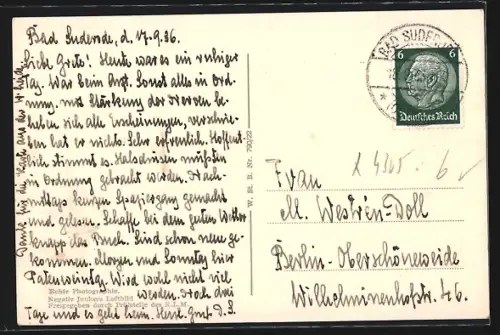 Bad Suderode, d. 17.9.36.
Liebe Grete! Heute war es ein ruhiger
Tag. War beim Arzt. Sonst alles in Ord-
nung, mit Stärkung der Nerven be-
heben sich alle Erscheinungen, verschrie-
ben hat er nichts. Sehr erfreulich. Hoffent-
lich stimmt es. Halsdrüsen müßten
in Ordnung gebracht werden. Nach-
mittags kurzen Spaziergang gemacht
und gelesen. Schaffe bei dem guten Wetter
knapp das Buch. Sind schon neue ge-
kommen. Morgen und Sonntag hier
Wird wohl nicht viel
werden. Noch drei
Tage und es geht heim. Herzl. Gruß D. J.
Danke für die Karte aus der
Echte Photographie.
Negativ Junkers Luftbild
Freigegeben durch Prüfstelle des R.L.M.
W. St. B. Nr. 790/22
BAD SUDERODE
6 6
Deutsches Reich
6
Frau
M. Westrén-Doll
Berlin-Oberschöneweide
Wilhelminenhofstr. 46.